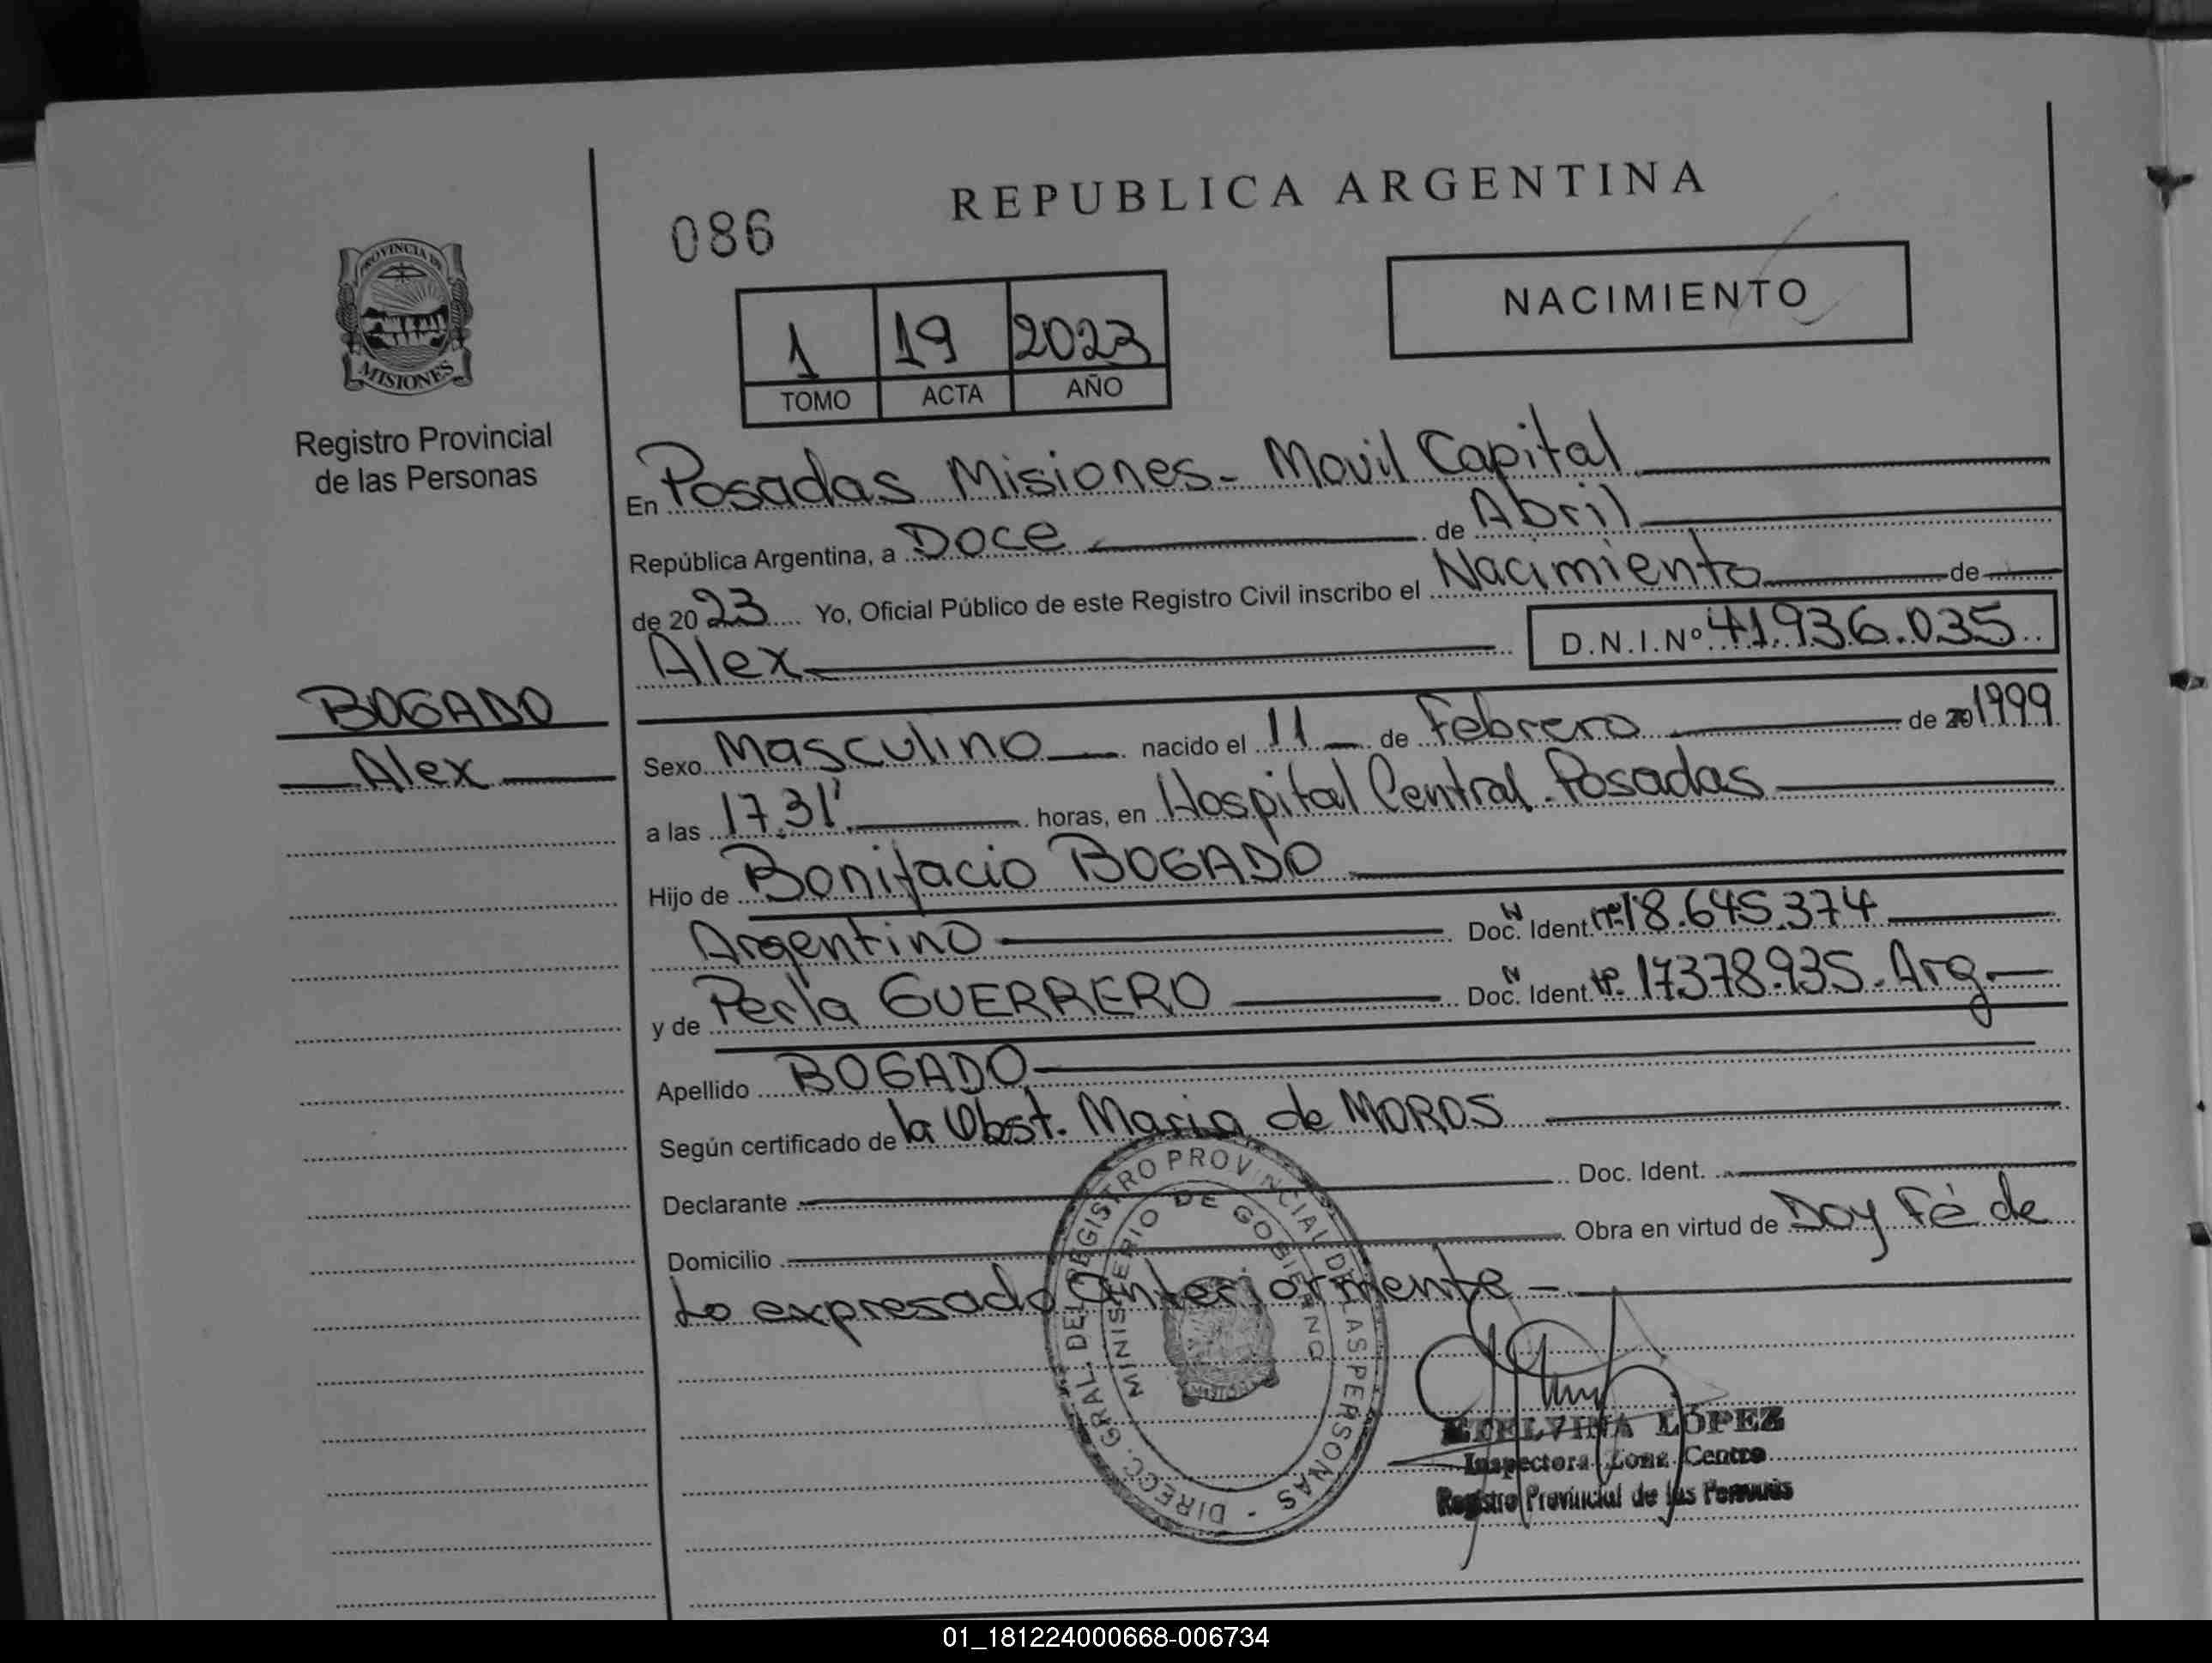 REPUBLICA ARGENTINA
086
NACIMIENTO
PROVINCIA DE
MISIONES
1 19 2023
TOMO ACTA AÑO
Registro Provincial
de las Personas
En Posadas Misiones - Movil Capital
República Argentina, a Doce de Abril
de 20 23 Yo, Oficial Público de este Registro Civil inscribo el Nacimiento de
Alex D.N.I.Nº 41.936.035
BOGADO
Alex
Sexo Masculino nacido el 11 de Febrero de 20 1999
a las 17.31' horas, en Hospital Central - Posadas
Hijo de Bonifacio BOGADO
Argentino Doc. N Ident. nº 18.645.374
y de Perla GUERRERO Doc. N Ident. nº 17378.935 - Arg
Apellido BOGADO
Según certificado de la Obst. Maria de MOROS
Declarante Doc. Ident.
Domicilio Obra en virtud de Doy Fé de
Lo expresado Anteriormente -
DIRECC. GRAL. DEL REGISTRO PROVINCIAL DE LAS PERSONAS -
MINISTERIO DE GOBIERNO
ETELVINA LÓPEZ
Inspectora Zona Centro
Registro Provincial de las Personas
01_181224000668-006734